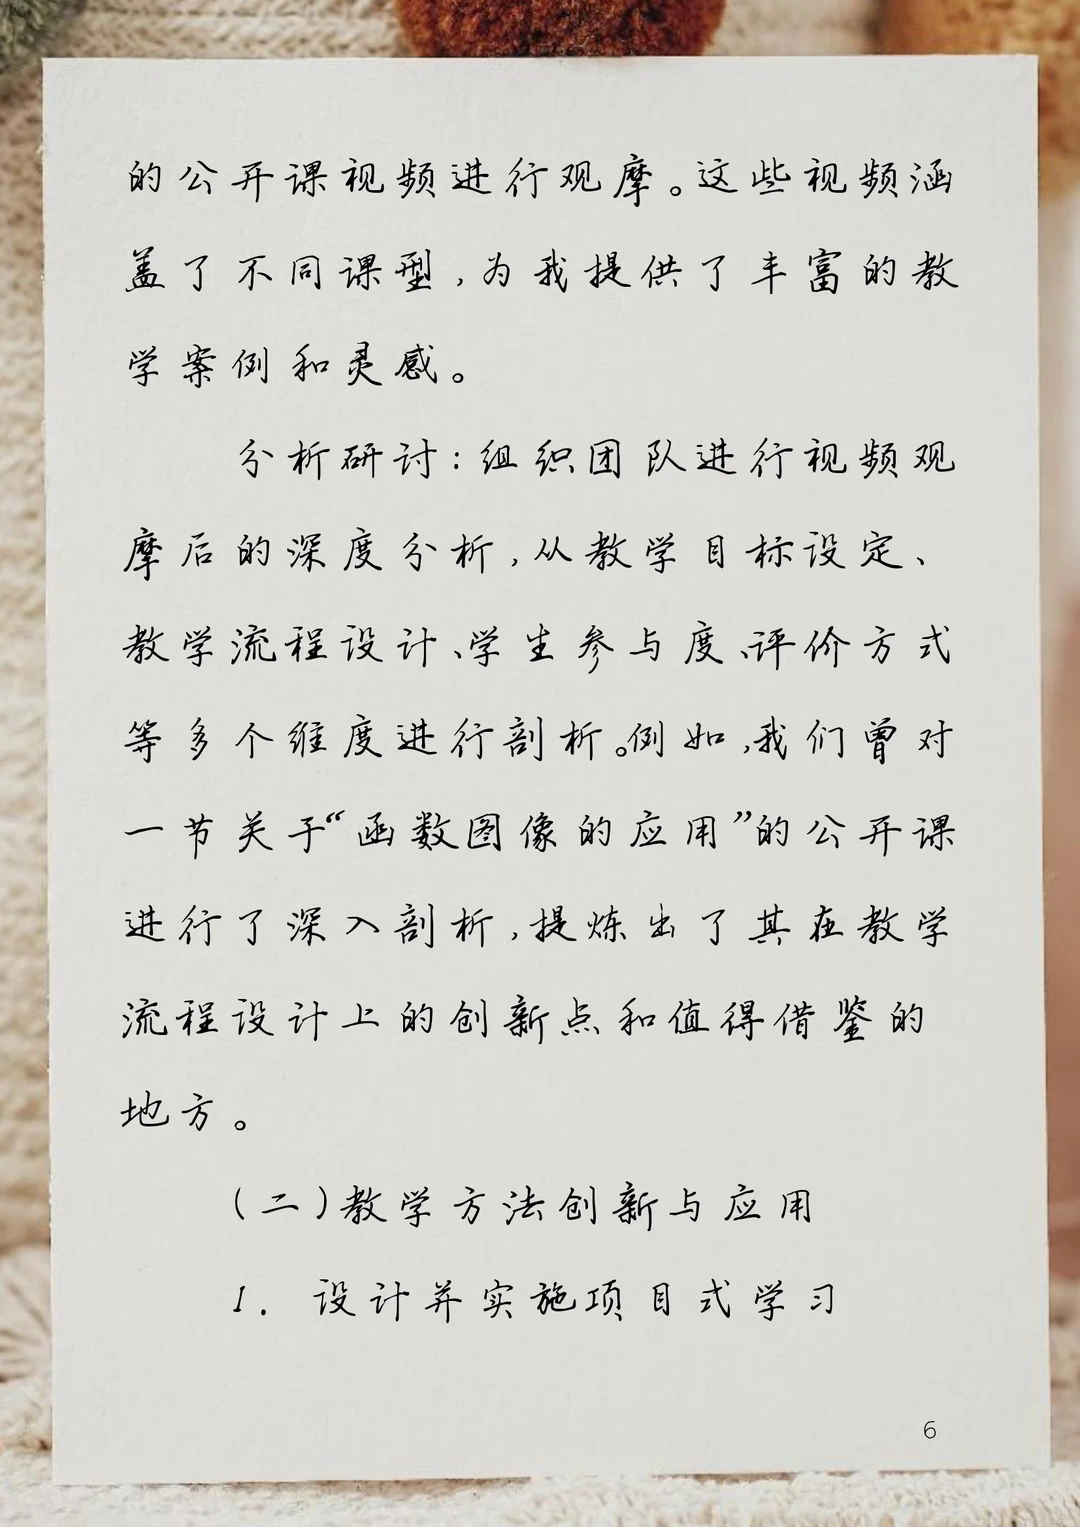 的公开课视频进行观摩。这些视频涵
盖了不同课型，为我提供了丰富的教
学案例和灵感。
分析研讨：组织团队进行视频观
摩后的深度分析，从教学目标设定、
教学流程设计、学生参与度、评价方式
等多个维度进行剖析。例如，我们曾对
一节关于“函数图像的应用”的公开课
进行了深入剖析，提炼出了其在教学
流程设计上的创新点和值得借鉴的
地方。
（二）教学方法创新与应用
1. 设计并实施项目式学习
6